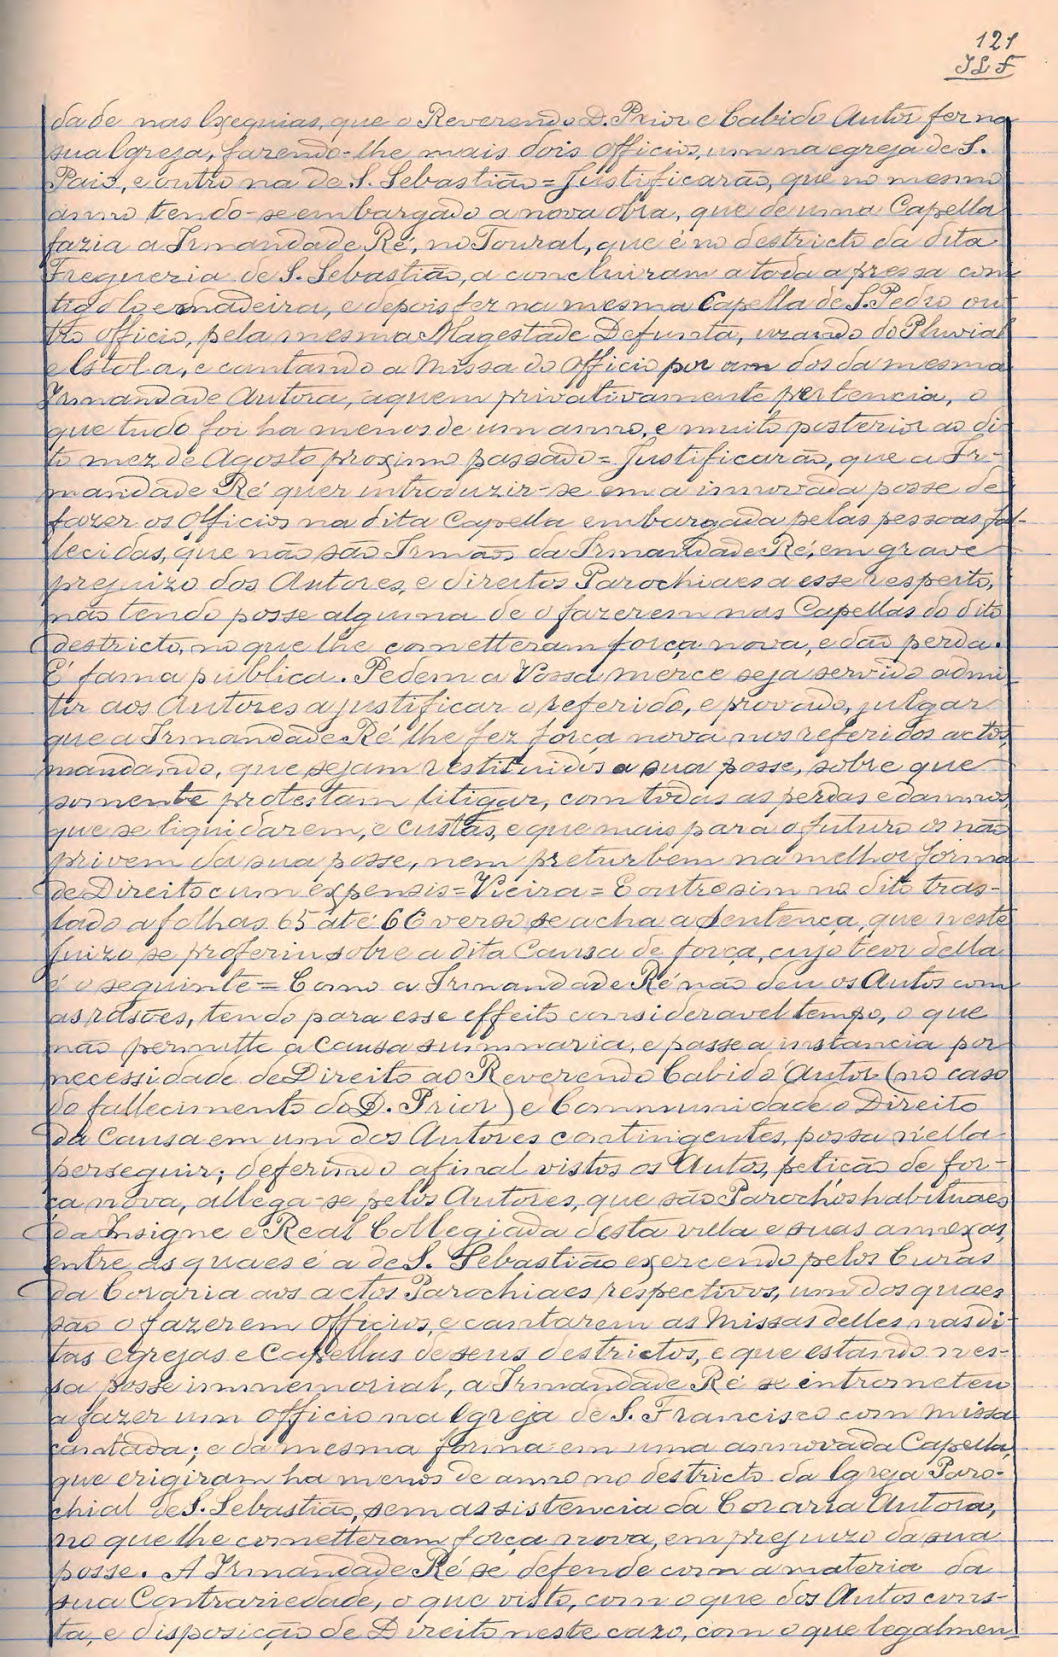 121
JLF
dade nas Exequias, que o Reverendo D. Prior e Cabido Autor fez na
sua Igreja, fazendo-lhe mais dois Officios, um na egreja de S.
Paio, e outro na de S. Sebastião = Justificarão, que no mesmo
anno tendo-se embargado a nova obra, que de uma Capella
fazia a Irmandade Ré, no Toural, que é no destricto da dita
Freguezia de S. Sebastião, a concluiram a toda a pressa com
tigolo e madeira, e depois fez na mesma Capella de S. Pedro ou-
tro officio, pela mesma Magestade Defunta, uzando do Pluvial
e Estola, e cantando a Missa do Officio por um dos da mesma
Irmandade Autora, aquem privativamente pertencia, o
que tudo foi ha menos de um anno, e muito posterior ao di-
to mez de Agosto proximo passado = Justificarão, que a Ir-
mandade Ré quer introduzir-se em a innovada posse de
fazer os Officios na dita Capella embargada pelas pessoas fal-
lecidas, que não são Irmãos da Irmandade Ré, em grave
prejuizo dos Autores, e direitos Parochiaes a esse respeito,
não tendo posse alguma de o fazerem nas Capellas do dito
destricto, no que lhe cometteram força nova, e dão perda.
É fama publica. Pedem a Vossa merce seja servido admi-
tir aos Autores a justificar o referido, e provado, julgar
que a Irmandade Ré lhe fez força nova nos referidos actos,
mandando, que sejam restituidos a sua posse, sobre que
somente protestam litigar, com todas as perdas e damnos,
que se liquidarem, e custas, e que mais para o futuro os não
privem da sua posse, nem preturbem na melhor forma
de Direito cum expensis = Vieira = E outrosim no dito tras-
lado a folhas 65 até 66 verso se acha a sentença, que neste
Juizo se proferiu sobre a dita Causa de força, cujo teor della
é o seguinte = Como a Irmandade Ré não deu os Autos com
as rasões, tendo para esse effeito consideravel tempo, o que
não permitte a Causa summaria, e passe a instancia por
necessidade de Direito ao Reverendo Cabido Autor (no caso
do fallecimento do D. Prior) e Communidade o Direito
da Causa em um dos Autores contingentes, possa n'ella
perseguir; deferindo afinal vistos os Autos, petição de for-
ça nova, allega-se pelos Autores, que são Parochos habituaes
da Insigne e Real Collegiada desta villa e suas annexas,
entre as quaes é a de S. Sebastião exercendo pelos Curas
da Coraria aos actos Parochiaes respectivos, um dos quaes
são o fazerem Officios, e cantarem as Missas delles nas di-
tas egrejas e Capellas de seus destrictos, e que estando nes-
sa posse immemorial, a Irmandade Ré se intrometeu
a fazer um officio na Igreja de S. Francisco com missa
cantada; e da mesma forma em uma annovada Capella,
que erigiram ha menos de anno no destricto da Igreja Paro-
chial de S. Sebastião, sem assistencia da Coraria Autora,
no que lhe cometteram força nova, em prejuizo da sua
posse. A Irmandade Ré se defende com a materia da
sua Contrariedade, o que visto, com o que dos Autos cons-
ta, e disposição de Direito neste cazo, com o que legalmen-